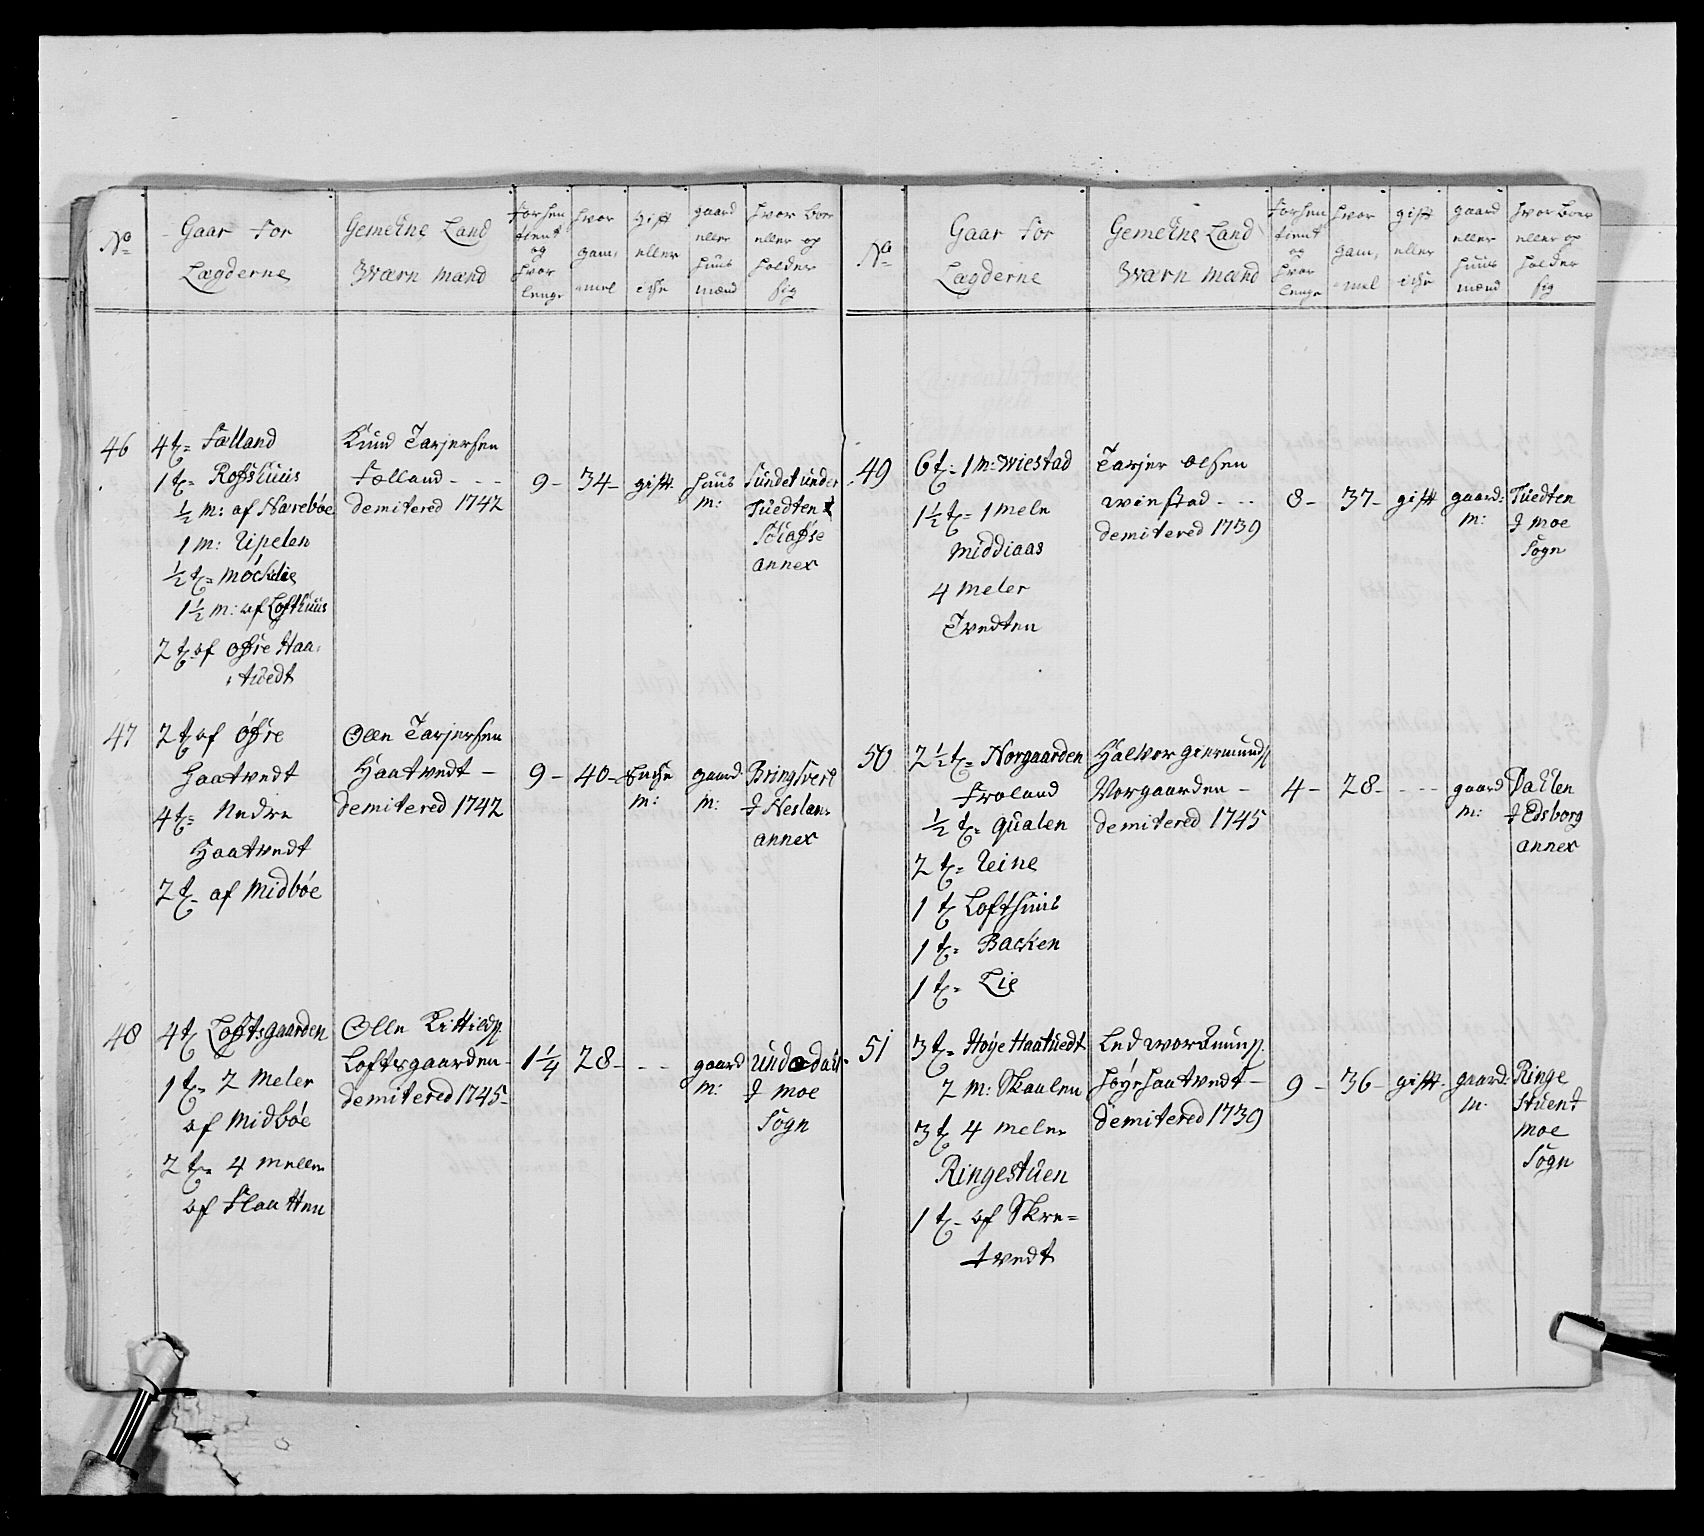 No
Gaar for
Lægderne
Gemeene Land
Wærn mænd
forhen
tient
og
hvor
lenge
hvor
gam,
mel
gift
eller
iche
gaard
eller
huus
mænd
hvor boer
eller op
holder
sig
46
4 t= Folland
1 t= Rosshuus
½ m: af Nærebøe
1 m: Uipelen
½ t= Möcklie
1½ m: af Lofthuus
2 t af öfre Haa,
tvedt
Knud Tarjersen
Folland - - -
demitered 1742
9 -
34 -
gift
huus
m:
Sundet under
Tuedten
annex
47
2 t af öfre
Haatvedt
4 t= Nedre
Haatvedt
2 t= af Midböe
Olle Tarjersen
Haatvedt -
demitered 1742
9 -
40 -
Enche
m:
gaard
m:
annex
48
4 t Loftsgaarden
1 t= 2 Meler
af Midböe
2 t= 4 Meller
af Slaatten
Olle Kittilds
Loftsgaarden -
demitered 1745 -
1¼
28 -
- -
gaard
m:
J Moe
Sogn
No
Gaar for
Lægderne
Gemeene Land
Wærn mænd
forhen
tient
og
hvor
lenge
hvor
gam,
mel
gift
eller
iche
gaard
eller
huus
mænd
hvor boer
eller op
holder
sig
49
6 t: 1 m: Wiestad
1½ t= 1 Meln
Middiaas
4 Meler
Tvedten
Tarjer Olsen
Winstad - - -
demitered 1739
8 -
37 -
gift
gaard:
m:
Tuedten
J Moe
Sogn
50
2½ t= Norgaarden
Froland
½ t= Qualen
2 t= Veine
1 t Lofthuus
1 t= Backen
1 t= Lie
Halvor Giermunds
Norgaarden -
demitered 1745
4 -
28 -
- - -
gaard
m:
Dahlen
J Edsborg
annex
51
3 t= Höye Haatuedt
2 m: Skaalen
3 t 4 Meler
Ringestuen
1 t= af Skre=
tvedt
Höyehaatvedt -
demitered 1739
9 -
36 -
gift
gaard:
m:
Ringe
stuen J
Moe
Sogn